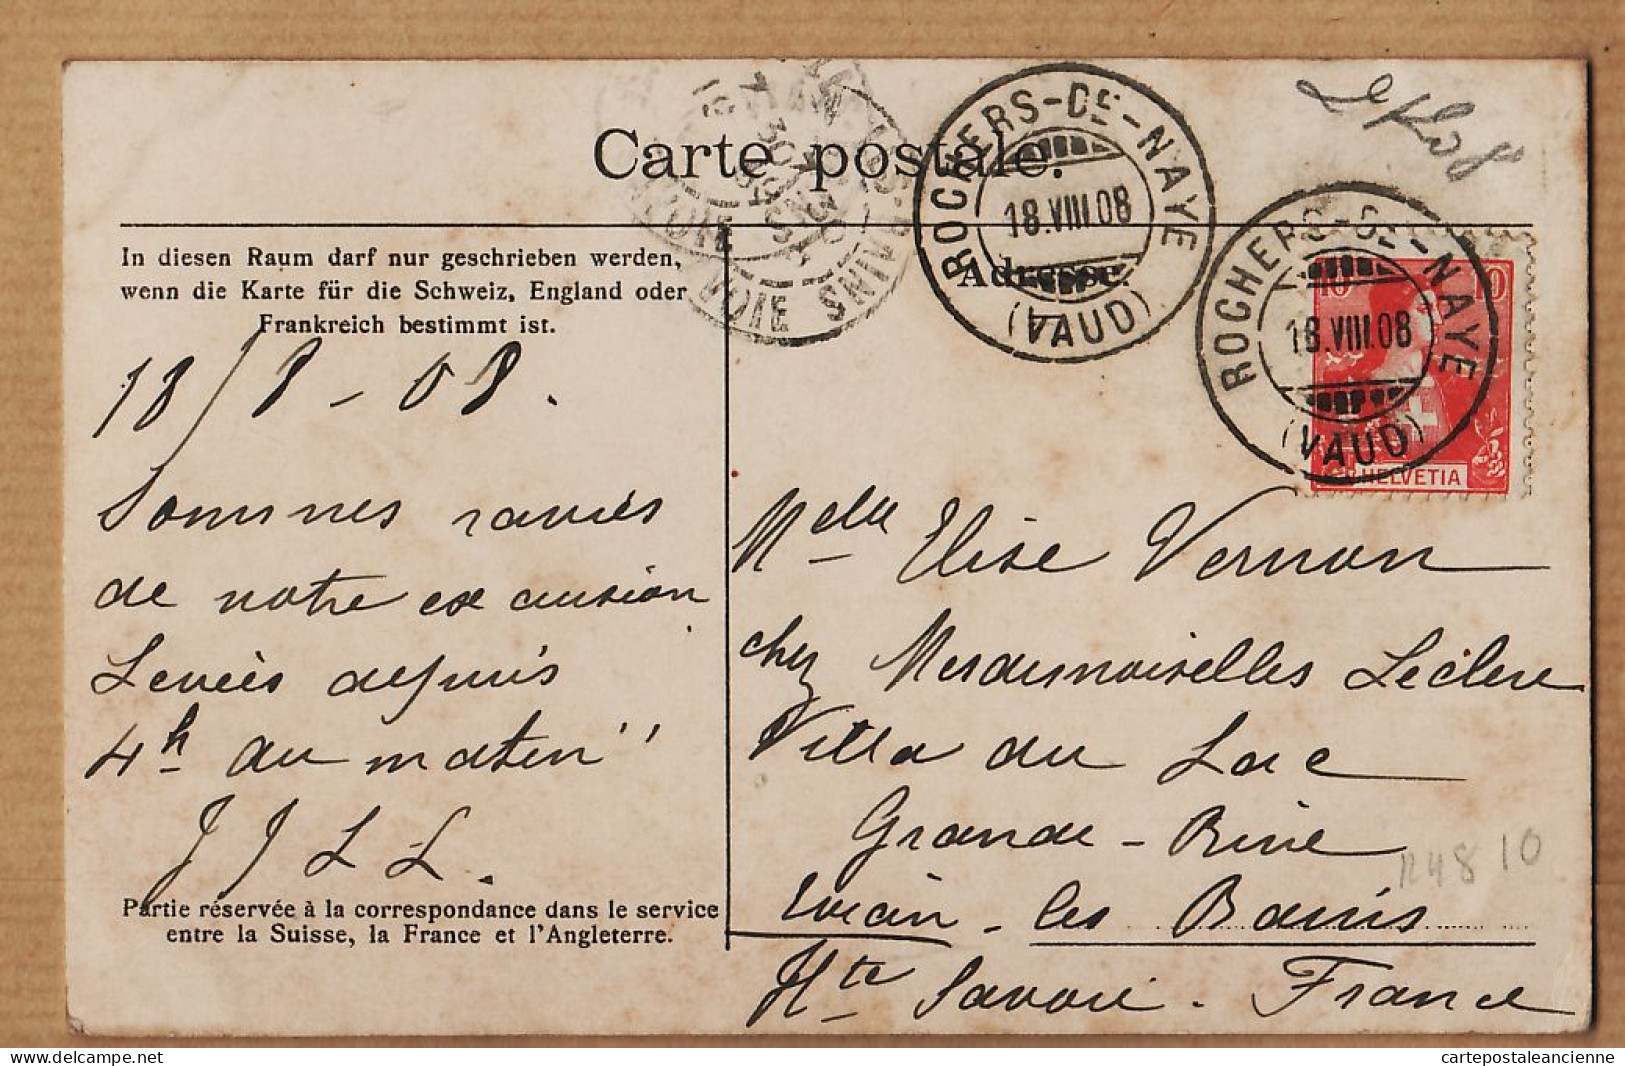 Carte postale.
ROCHERS-DE-NAYE
18.VIII.08
(VAUD)
ROCHERS-DE-NAYE
18.VIII.08
(VAUD)
10 10
HELVETIA
SAVOIE
In diesen Raum darf nur geschrieben werden,
wenn die Karte für die Schweiz, England oder
Frankreich bestimmt ist.
Adresse.
18/8-08.
Sommes ravies
de notre excursion
Levées depuis
4h au matin"
J J L L.
Partie réservée à la correspondance dans le service
entre la Suisse, la France et l'Angleterre.
Mdelle Elise Vernon
chez Mesdemoiselles Leclerc
Villa du Lac
Grande-Rive
Evian-les Bains
Hte Savoie. France
R48 10
cartepostaleancienne